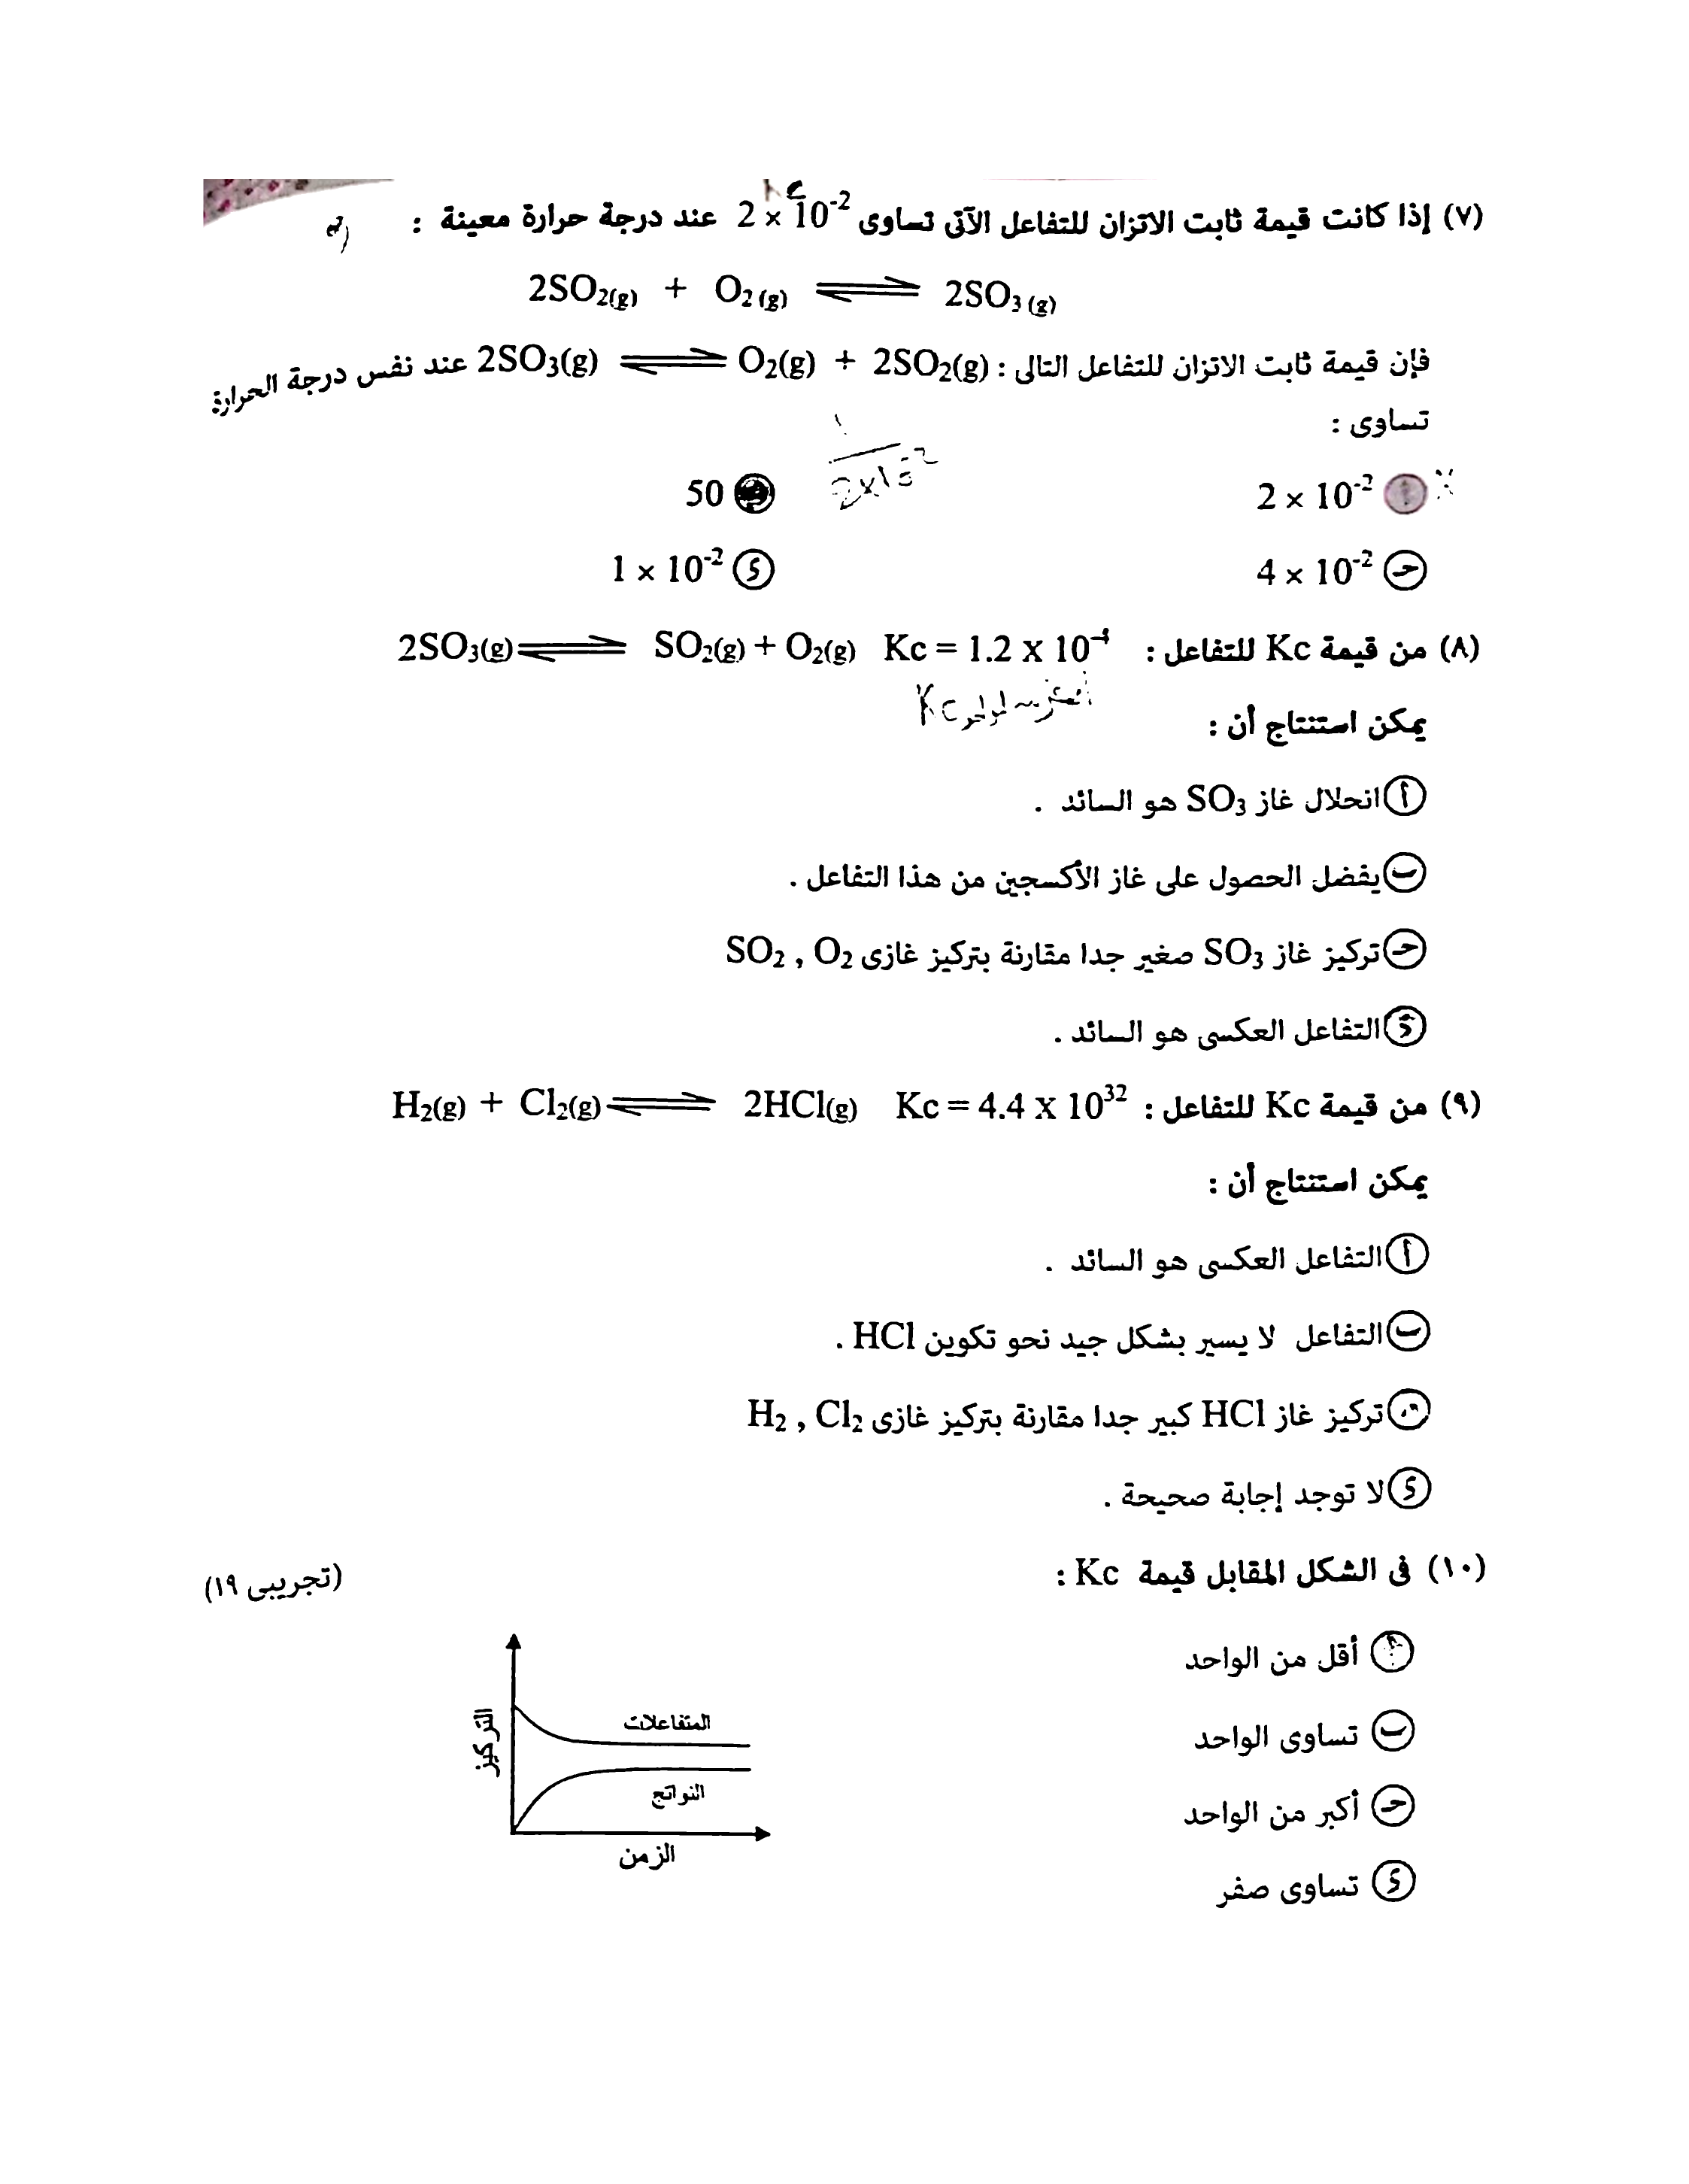 (٧) إذا كانت قيمة ثابت الاتزان للتفاعل الآتى تساوى 2 × 10⁻² عند درجة حرارة معينة :
2SO₂(g) + O₂(g) ⇌ 2SO₃(g)
فإن قيمة ثابت الاتزان للتفاعل التالى : 2SO₃(g) ⇌ O₂(g) + 2SO₂(g) عند نفس درجة الحرارة
تساوى :
١
2×10⁻²
أ 2 × 10⁻² 50
حـ 4 × 10⁻² د 1 × 10⁻²
(٨) من قيمة Kc للتفاعل : 2SO₃(g) ⇌ SO₂(g) + O₂(g) Kc = 1.2 x 10⁻⁴
Kc
يمكن استنتاج أن :
أ انحلال غاز SO₃ هو السائد .
ب يفضل الحصول على غاز الأكسجين من هذا التفاعل .
حـ تركيز غاز SO₃ صغير جدا مقارنة بتركيز غازى SO₂ , O₂
د التفاعل العكسى هو السائد .
(٩) من قيمة Kc للتفاعل : H₂(g) + Cl₂(g) ⇌ 2HCl(g) Kc = 4.4 x 10³²
يمكن استنتاج أن :
أ التفاعل العكسى هو السائد .
ب التفاعل لا يسير بشكل جيد نحو تكوين HCl .
حـ تركيز غاز HCl كبير جدا مقارنة بتركيز غازى H₂ , Cl₂
د لا توجد إجابة صحيحة .
(١٠) فى الشكل المقابل قيمة Kc : (تجريبى ١٩)
أ أقل من الواحد
ب تساوى الواحد
حـ أكبر من الواحد
د تساوى صفر
التركيز
المتفاعلات
النواتج
الزمن